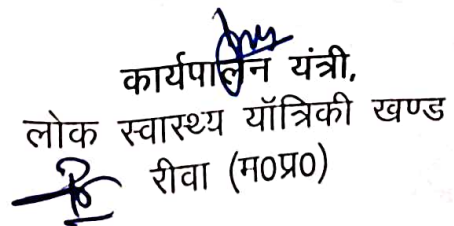 कार्यपालन यंत्री,
लोक स्वास्थ्य यॉत्रिकी खण्ड
रीवा (म०प्र०)